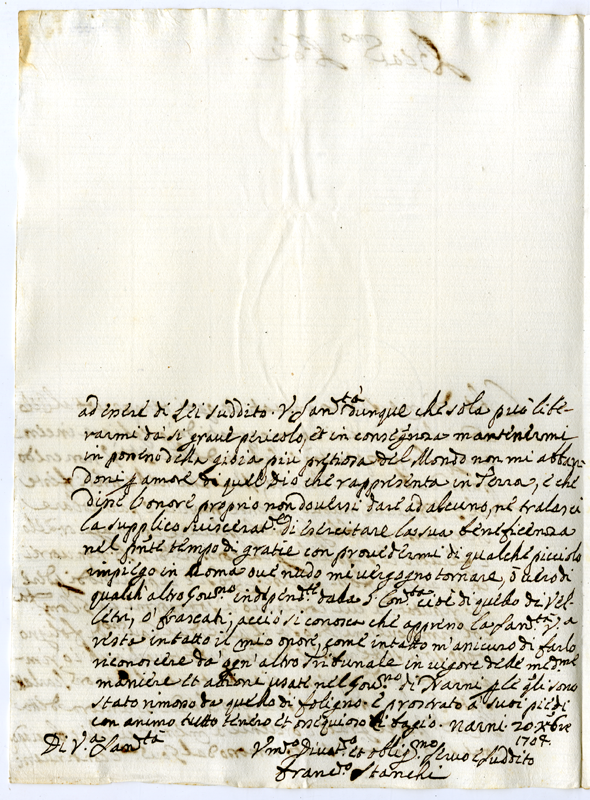 ad essere di lei suddito. V. San.tà dunque che sola può libe-
rarmi da sì grave pericolo, et in consegnoza mantenermi
in possesso della gioia più pretiosa del Mondo non mi abban-
doni p amore di quel Dio che rappresenta in Terra, e che
disse l'onore proprio non doversi dare ad alcuno, nè tralasci
la supplico sviscerat.e di esercitare la sua beneficenza
nel pnte tempo di gratie con provedermi di qualche picciolo
impiego in Roma ove nudo mi vergogno tornare, ò vero di
qualch'altro Gov.no independ.te dalla S. Con.ta cioè di quello di Vel-
letri, ò frascati; acciò si conosca che appresso la San.tà V.a
resta intatto il mio onore, come intatto m'assicuro di farlo
riconoscere da ogn'altro Tribunale in vigore delle med.me
maniere et attione usate nel Gov.no di Narni p le q.li sono
stato rimosso da quello di foligno. e prostrato a suoi piedi
con animo tutto tenero et ossequioso li bagio. Narni 20 Xbre
1704.
Di V.a San.tà
Vm.o Divot.o et obblig.mo servo e suddito
Franc.o Stanchi